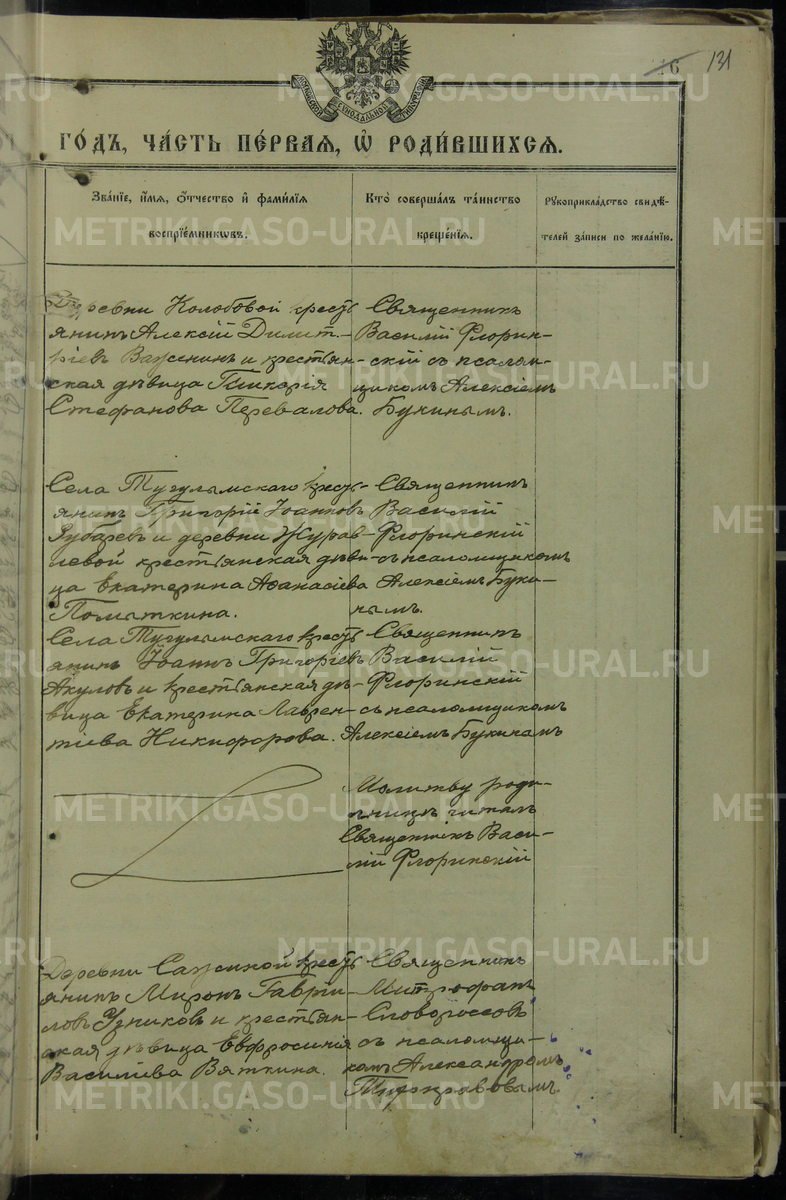 131
го́дъ, ча́сть пе́рвая, ѡ҆ роди́вшихсѧ.
Зва́нїе, и҆́мѧ, ѻ҆́тчество и҆ фами́лїѧ
воспрїе́мникѡвъ.
Кто̀ соверша́лъ та́инство
креще́нїѧ.
Рꙋкоприкла́дство свидѣ́-
телей за́писи по жела́нїю.
Деревни Колобовой кресть
янинъ Алексій Димит-
ріевъ Важенинъ и крестьян-
ская дѣвица Гликерія
Стефанова Перевалова.
Священникъ
Василій Флорин-
скій съ псалом-
щикомъ Алексіемъ
Букинымъ.
Села Тугулымскаго кресть-
янинъ Григорій Іоанновъ
Зубаревъ и деревни Журав-
левой крестьянская дѣви-
ца Екатерина Аѳанасіева
Поматкина.
Священникъ
Василій
Флоринскій
съ псаломщикомъ
Алексіемъ Буки-
нымъ.
Села Тугулымскаго кресть
янинъ Іоаннъ Григоріевъ
Акуловъ и крестьянская дѣ-
вица Екатерина Лаврен-
тіева Никифорова.
Священникъ
Василій
Флоринскій
съ псаломщикомъ
Алексіемъ Букинымъ
Молитву роди-
льницѣ читалъ
Священникъ Васи-
лій Флоринскій
Деревни Сажиной кресть
янинъ Миронъ Гаври-
ловъ Узниковъ и крестьян-
ская дѣвица Евфросинія
Василіева Вяткина.
Священникъ
Митрофанъ
Словороссовъ
съ псаломщи-
комъ Александромъ
METRIKI.GASO-URAL.RU